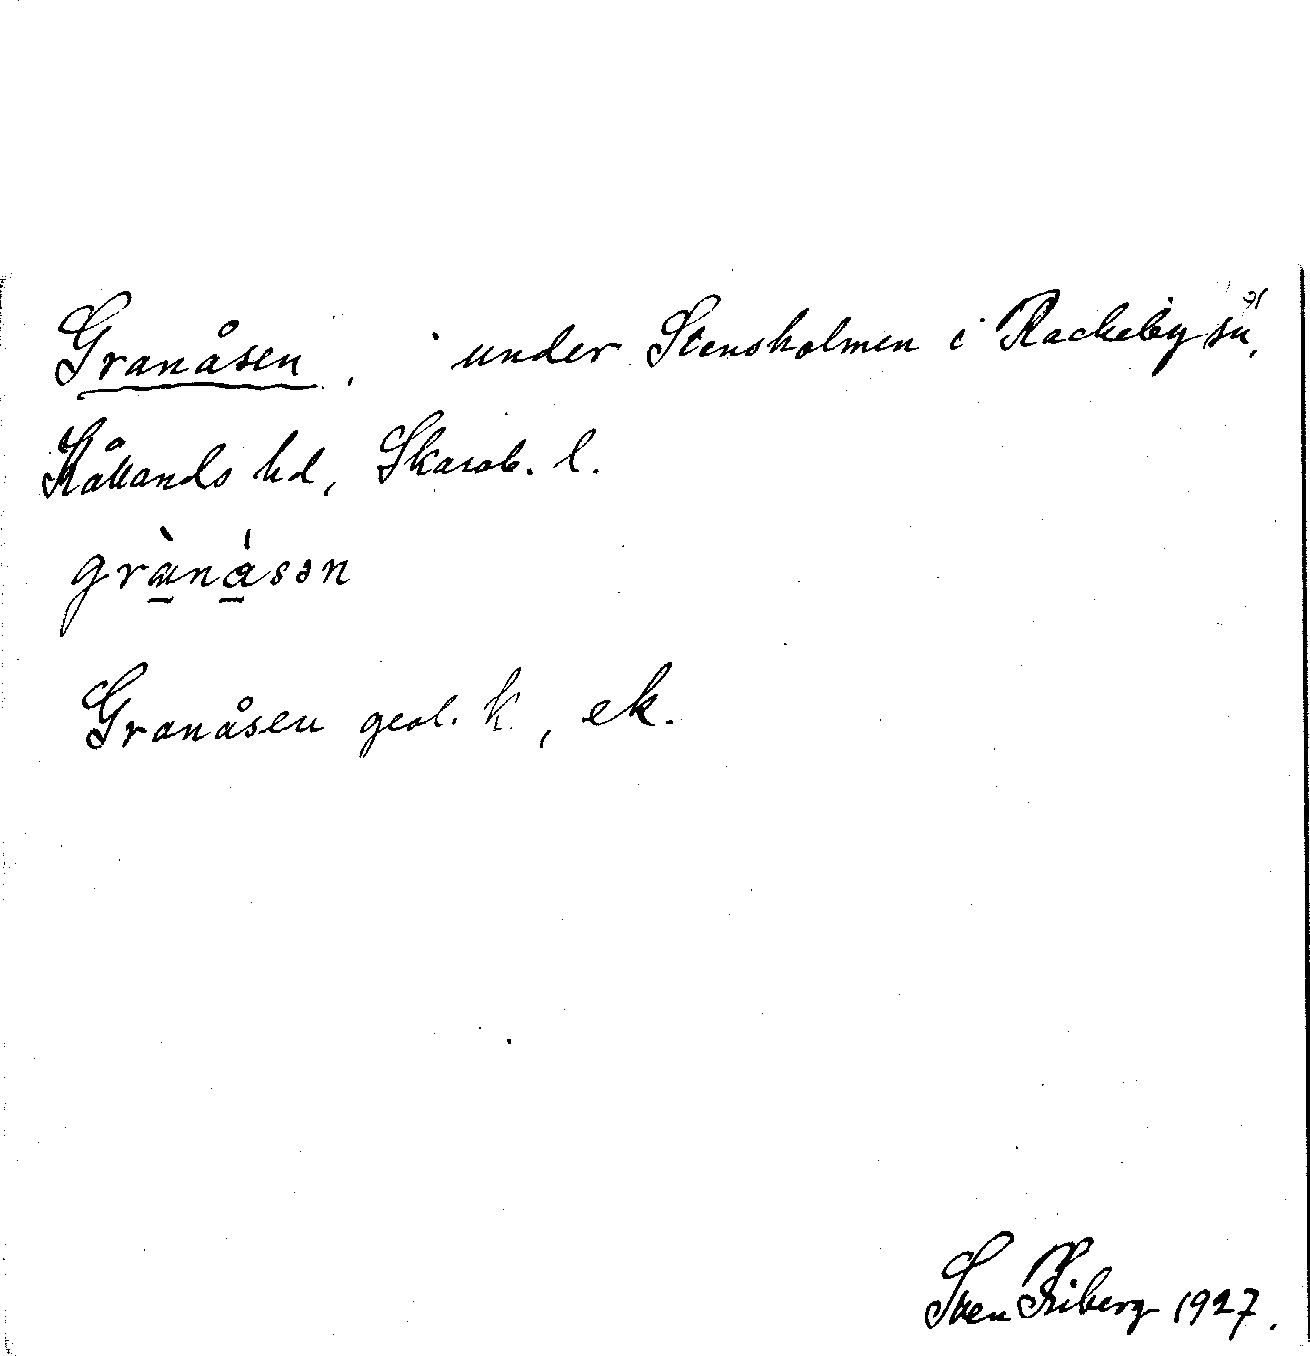 Granåsen, under Stensholmen i Rackeby sn,
Kållands hd, Skarab. l.
grànásən
Granåsen geol. k, ek.
Sven Friberg 1927.